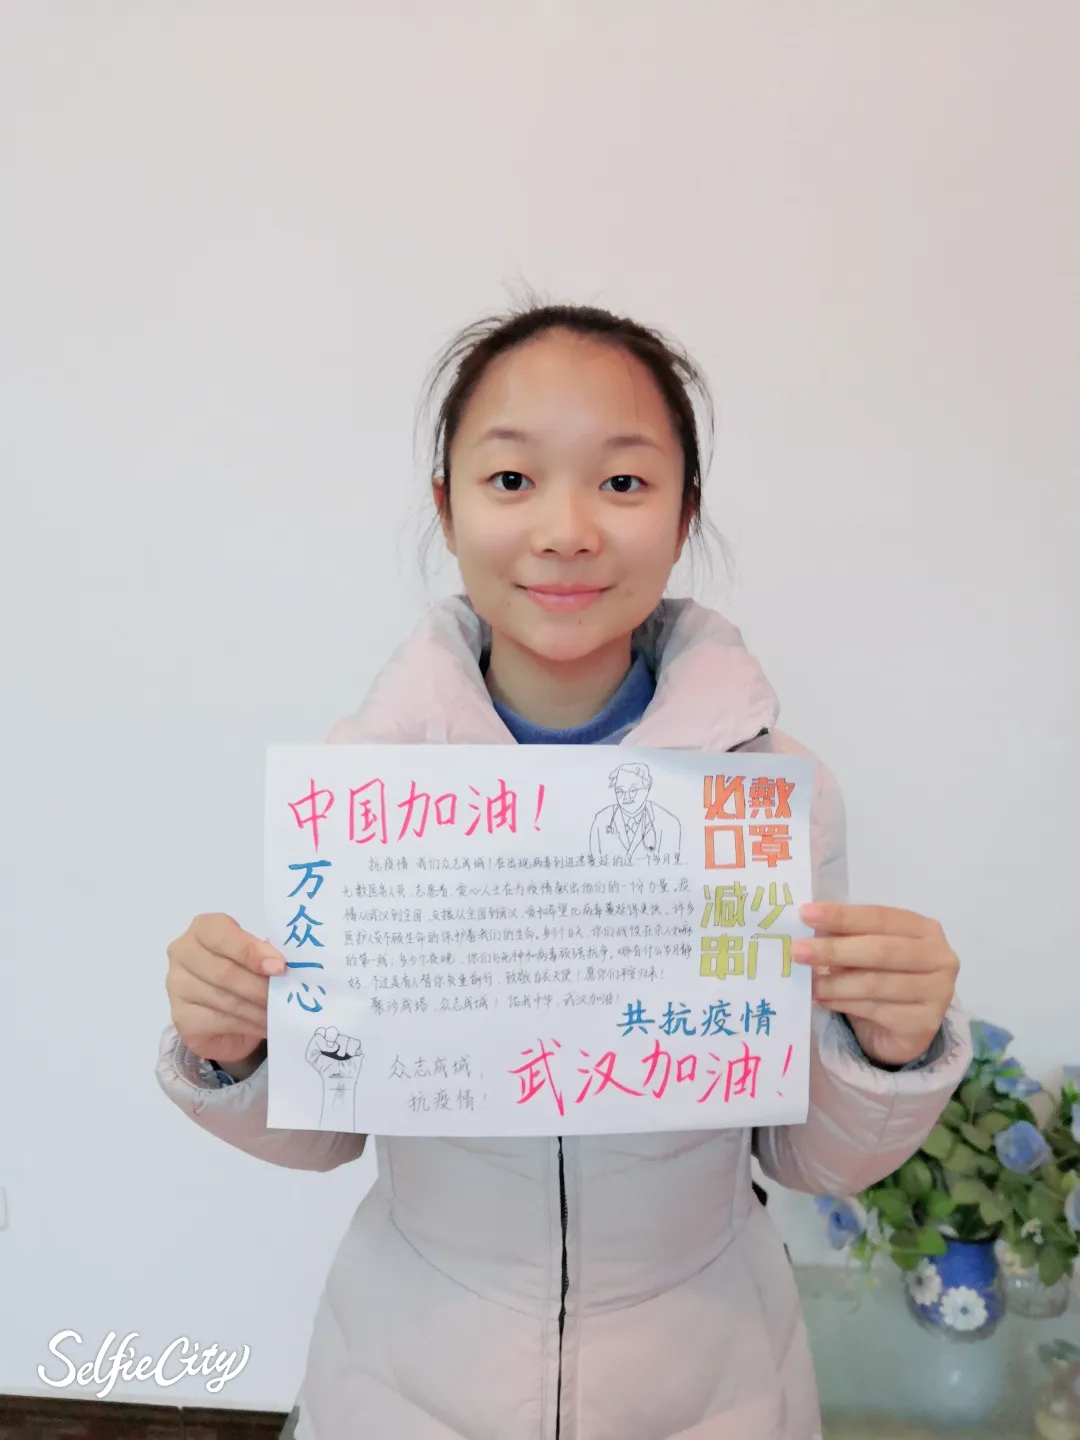 中国加油!
必戴
口罩
减少
串门
万众一心
抗疫情 我们众志成城!在出现病毒到迅速蔓延的这一个多月里,
无数医务人员、志愿者、爱心人士在为疫情献出他们的一份力量。疫
情从武汉到全国,支援从全国到武汉,爱和希望比病毒蔓延得更快。许多
医护人员不顾生命的保护着我们的生命。多少个白天,你们战役在
的第一线;多少个夜晚,你们与死神和病毒顽强抗争。哪有什么岁月静
好,不过是有人替你负重前行,致敬白衣天使!愿你们平安归来!
聚沙成塔,众志成城! 佑我中华,武汉加油!
共抗疫情
众志成城,
抗疫情!
武汉加油!
SelfieCity